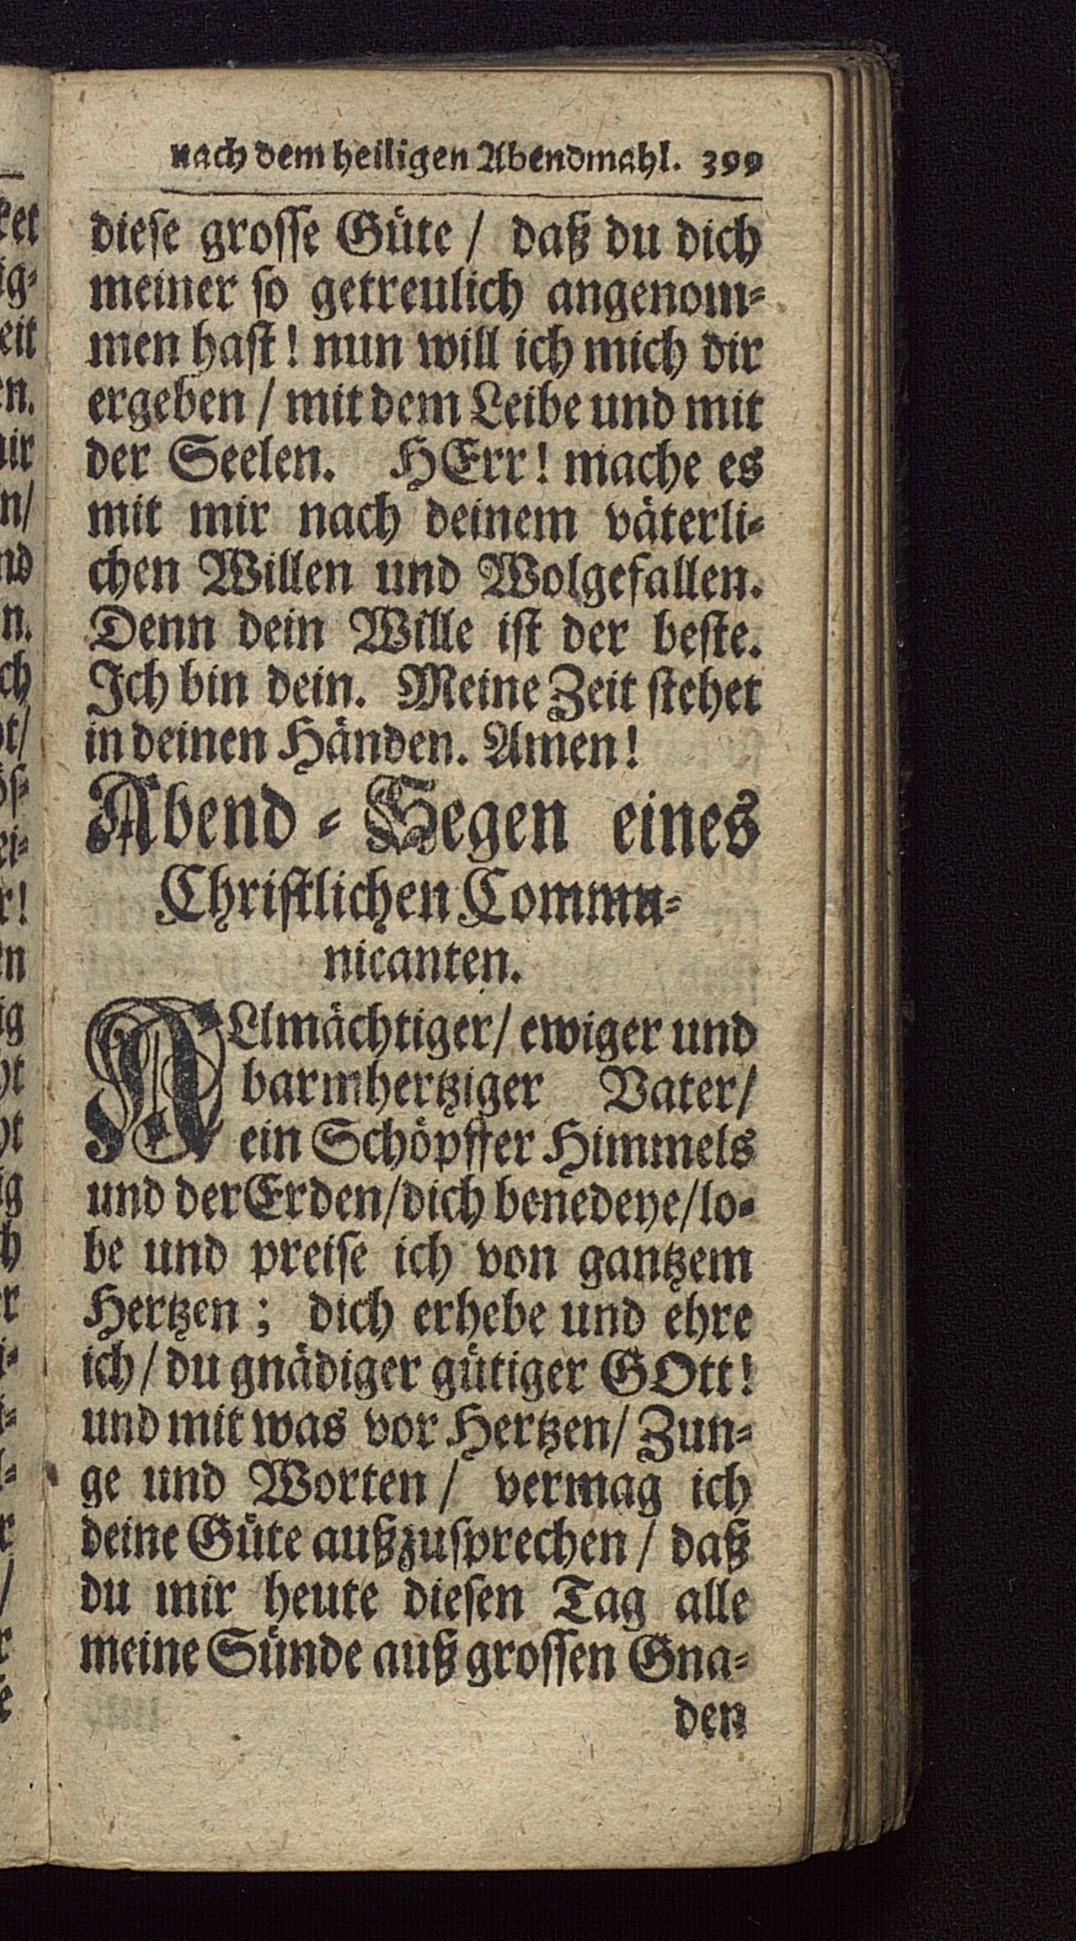 nach dem heiligen Abendmahl. 399
diese grosse Güte / daß du dich
meiner so getreulich angenom-
men hast! nun will ich mich dir
ergeben / mit dem Leibe und mit
der Seelen. HErr! mache es
mit mir nach deinem väterli-
chen Willen und Wolgefallen.
Denn dein Wille ist der beste.
Ich bin dein. Meine Zeit stehet
in deinen Händen. Amen!
Abend-Segen eines
Christlichen Commu-
nicanten.
ALlmächtiger/ ewiger und
barmhertziger Vater/
ein Schöpffer Himmels
und der Erden/dich benedeye/lo-
be und preise ich von gantzem
Hertzen; dich erhebe und ehre
ich/ du gnädiger gütiger GOtt!
und mit was vor Hertzen/ Zun-
ge und Worten / vermag ich
deine Güte außzusprechen / daß
du mir heute diesen Tag alle
meine Sünde auß grossen Gna-
den